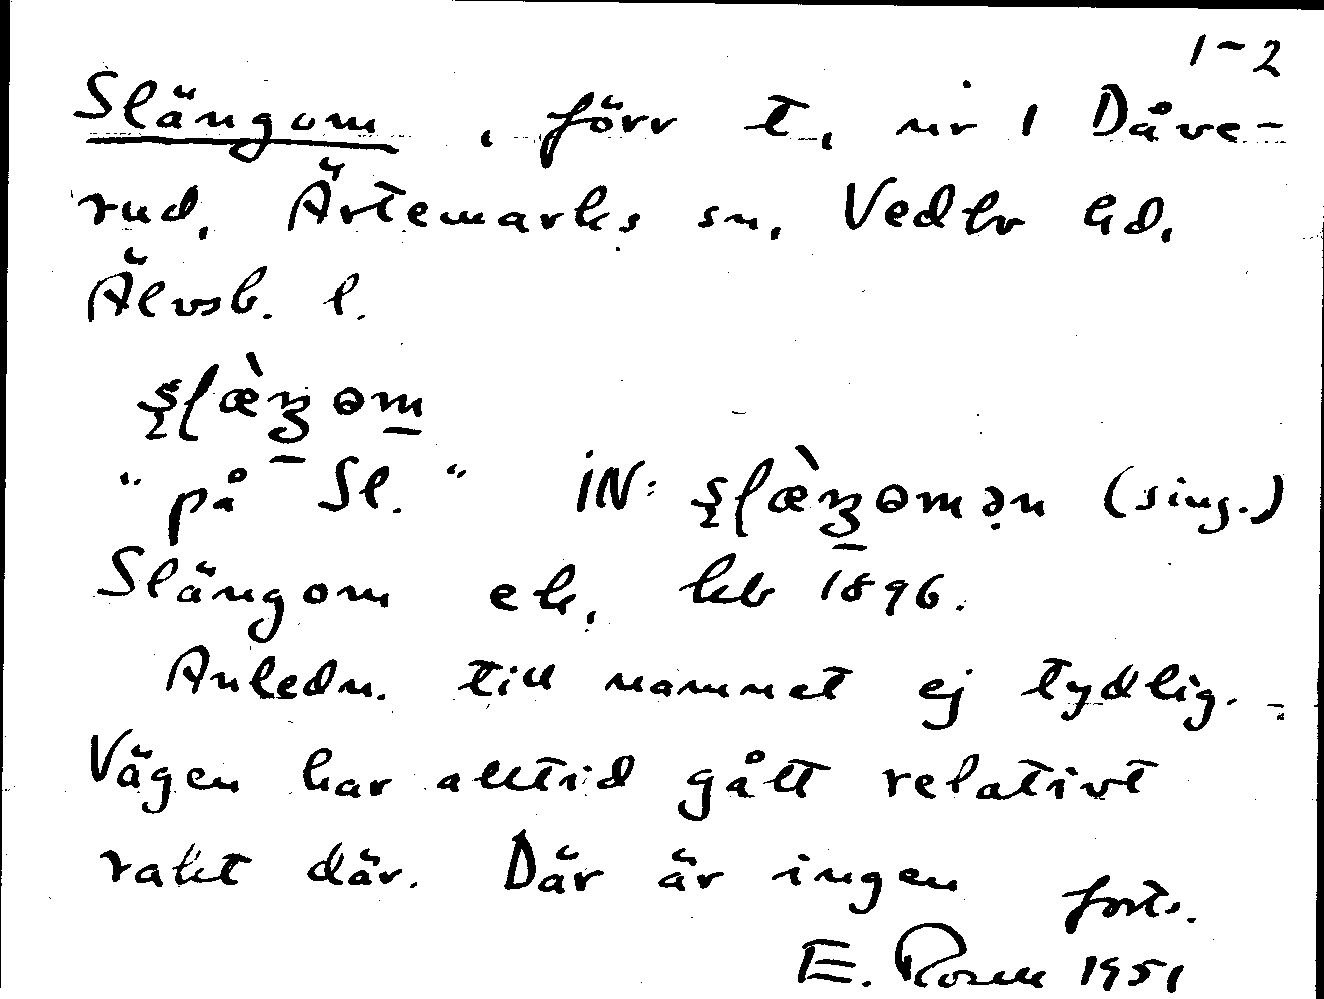 1-2
Slängom, förr t., nr 1 Dåve-
rud, Ärtemarks sn, Vedbo hd,
Älvsb. l.
ʂlæ̀ŋom
"på Sl." IN: ʂlæ̀ŋomən (sing.)
Slängom ek, kb 1896.
Anledn. till namnet ej tydlig.
Vägen har alltid gått relativt
rakt där. Där är ingen forts.
E. Rosell 1951